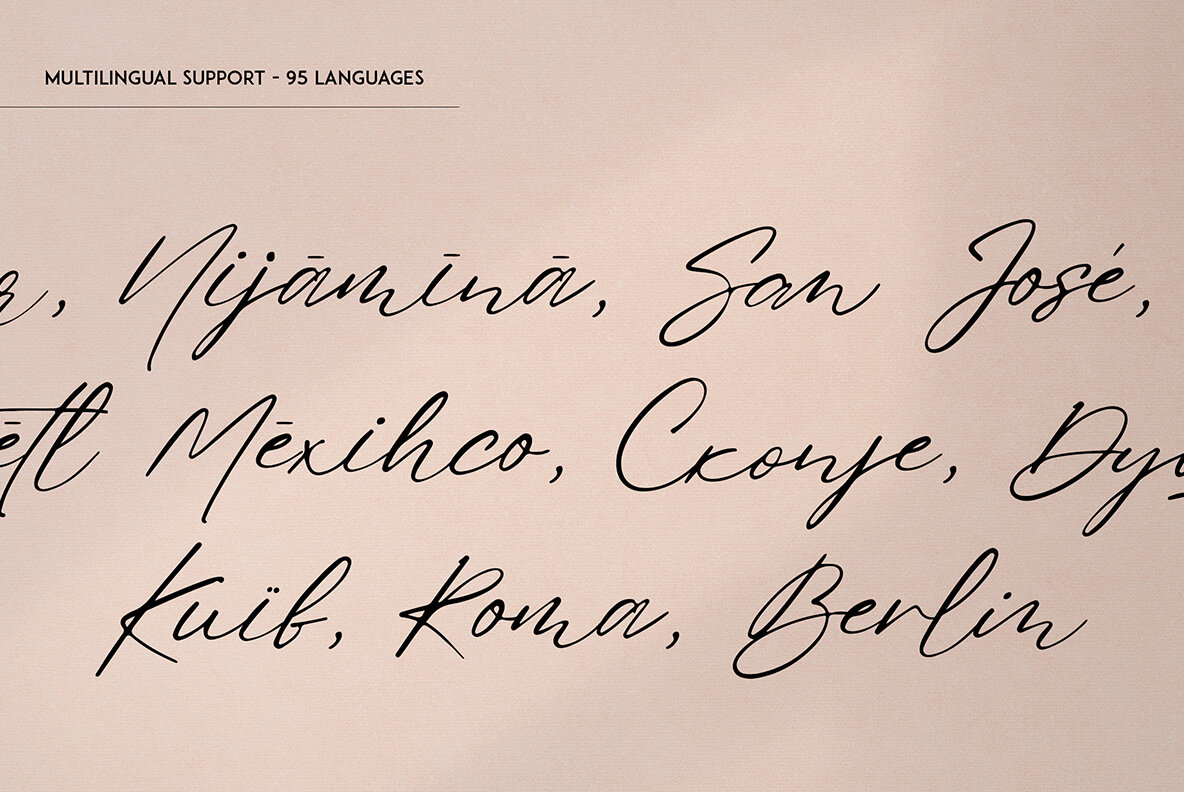 MULTILINGUAL SUPPORT - 95 LANGUAGES
Nijāmīnā, San José,
Mēxihco, Скопје,
Київ, Roma, Berlin